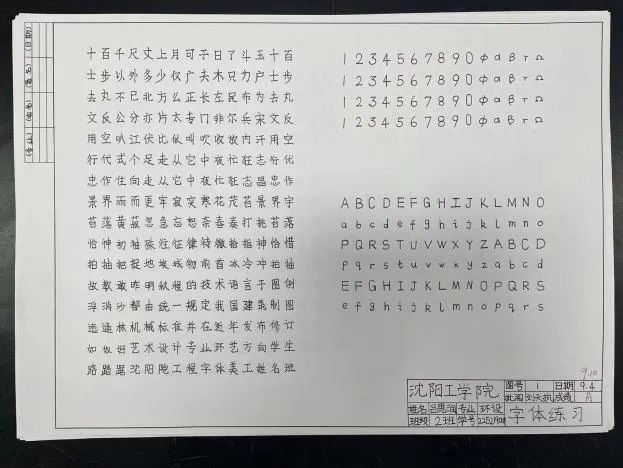 十百千尺丈上月可子日了斗玉十百
士步以外多少仅广去木只力户士步
去丸不已北方么正长左民布为去丸
文反公分亦片太专门非尔兵宋文反
用空叭江伏比做叫吹收放内汗用空
行代式个足走从它中夜忙狂志行代
忠作住向走从它中夜忙狂志昌忠作
景界雨而更牢寂突寒花茂苔草景界
苔落黄菰忽急忘恕奈春奏打桃苔落
怕神初袖张往征律待微拾指神怕惜
拍抽把捉地埃城物前首冰冷冲拍抽
故教敢昨明秋程的技术语言于图例
浮消沙都由统一规定我国建筑制图
造通林机械标准并在近年发布修订
如板旧艺术设计专业环艺方向学生
路踏踞沈阳院工程字体美工姓名班
1234567890ΦαβγΩ
1234567890ΦαβγΩ
1234567890ΦαβγΩ
1234567890ΦαβγΩ
ABCDEFGHIJKLMNO
abcdefghijklmno
PQRSTUVWXYZABCD
pqrstuvwxyzabcd
EFGHIJKLMNOPQRS
efghijklmnopqrs
9.10
沈阳工学院 图号 1 日期 9.4
批阅 成绩 A
姓名 吕思润 专业 环设
班级 2班 学号
字体练习
(日期)
(签名)